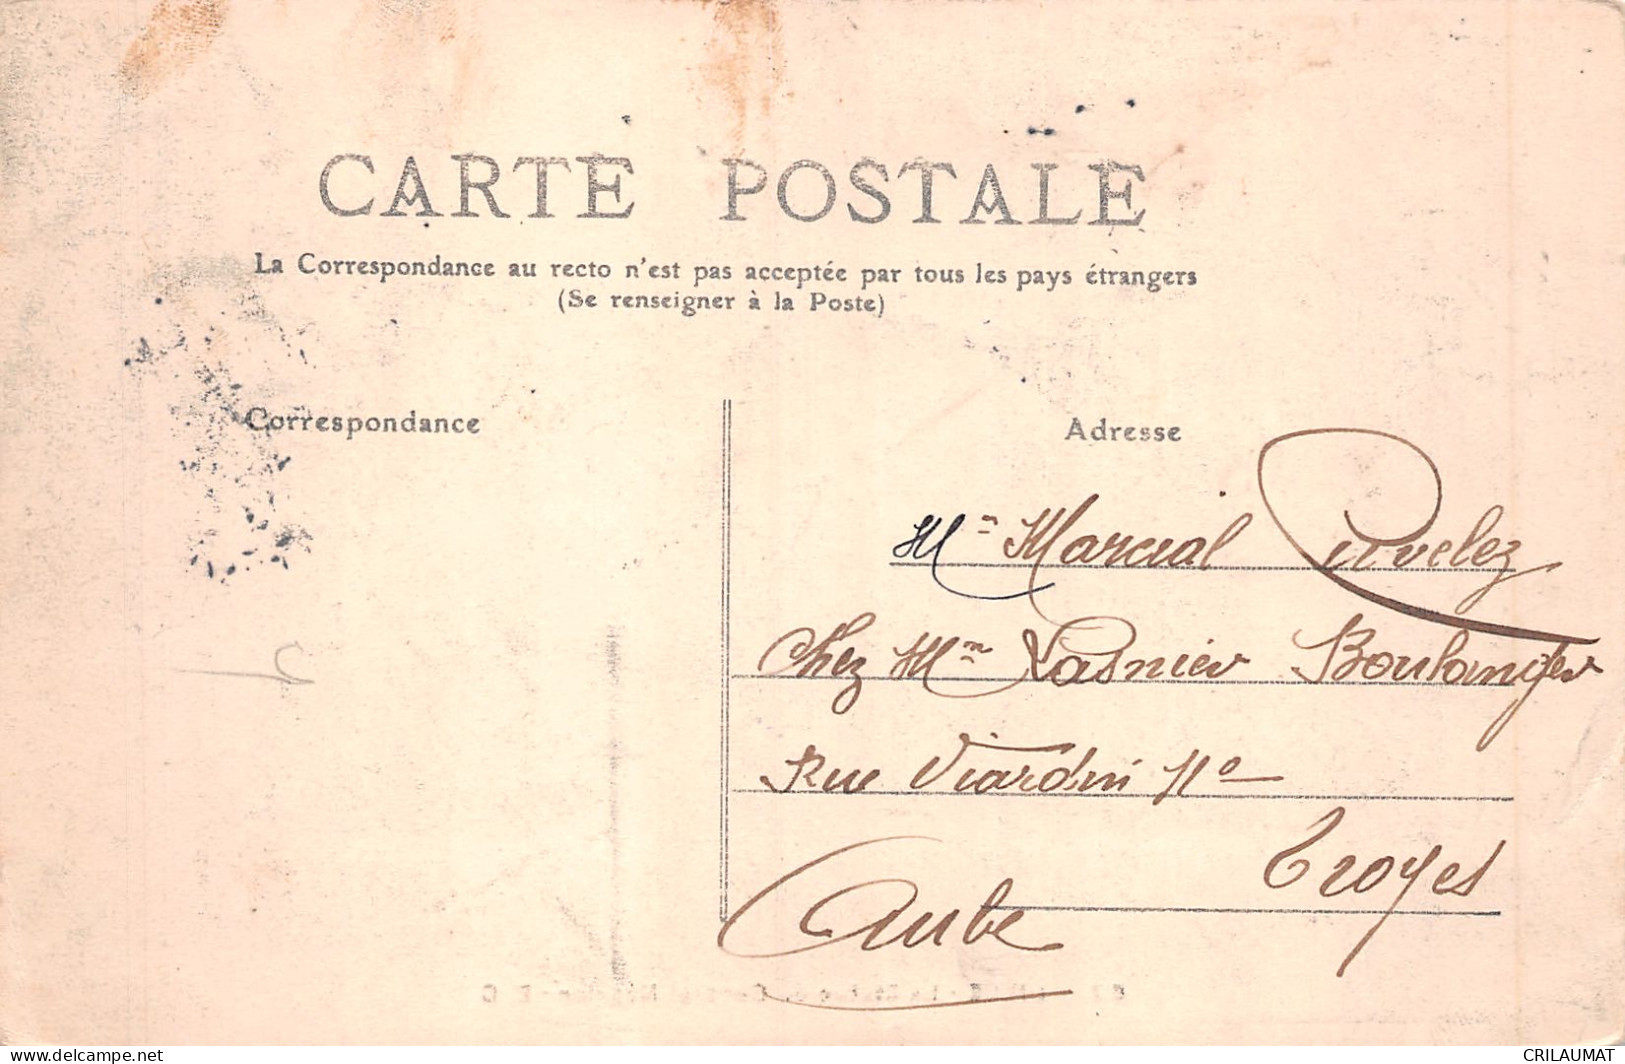 CARTE POSTALE
La Correspondance au recto n'est pas acceptée par tous les pays étrangers
(Se renseigner à la Poste)
Correspondance
Adresse
Mr Marcial Cuvelez
Chez Mme Lasnier Boulanger
Rue Viardin No
Troyes
Aube
delcampe.net
CRILAUMAT